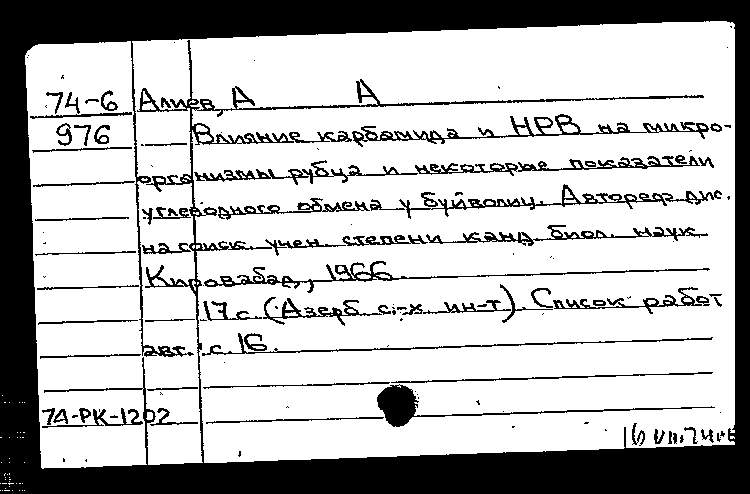 74-6 Алиев, А А
976 Влияние карбамида и НРВ на микро-
организмы рубца и некоторые показатели
углеводного обмена у буйволиц. Автореф. дис.
на соиск. учен. степени канд. биол. наук
Кировабад, 1966.
17 с. (Азерб. с.-х. ин-т). Список работ
авт.: с. 16.
7А-РК-1202
16